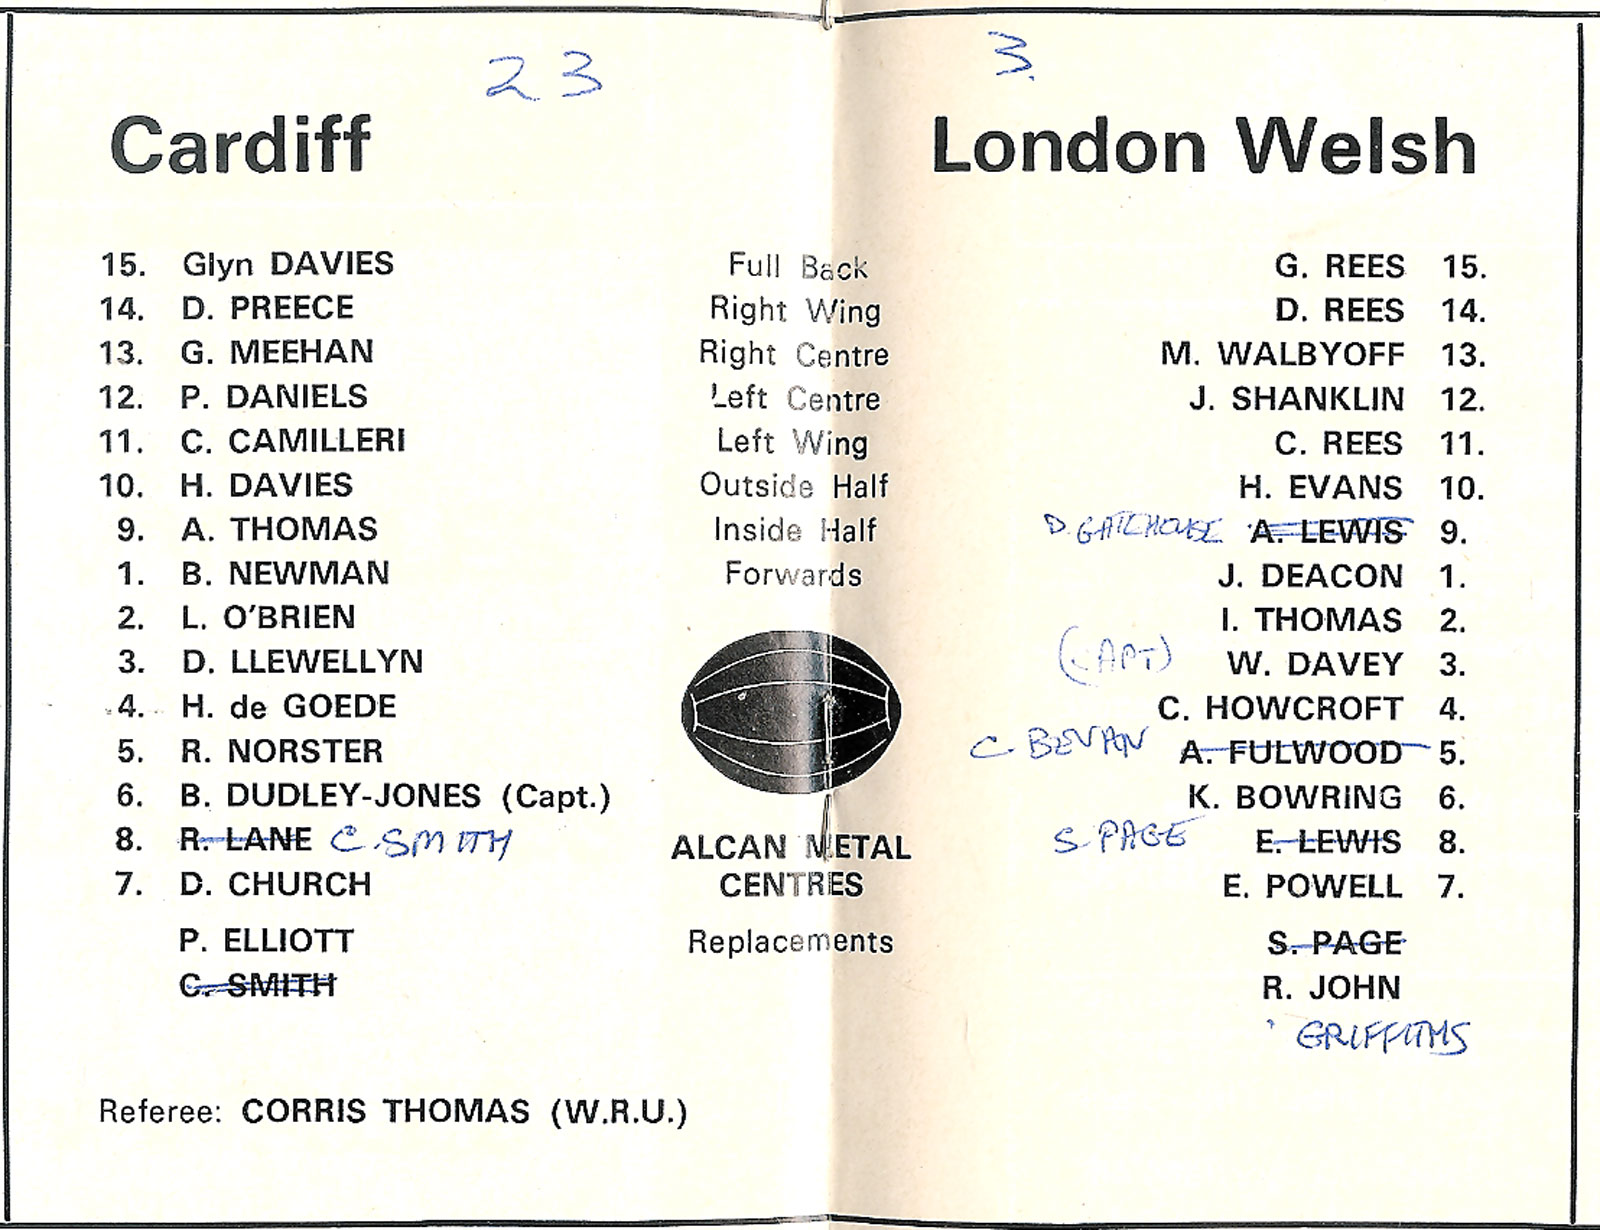 23
3.
Cardiff
London Welsh
15. Glyn DAVIES Full Back G. REES 15.
14. D. PREECE Right Wing D. REES 14.
13. G. MEEHAN Right Centre M. WALBYOFF 13.
12. P. DANIELS Left Centre J. SHANKLIN 12.
11. C. CAMILLERI Left Wing C. REES 11.
10. H. DAVIES Outside Half H. EVANS 10.
9. A. THOMAS Inside Half D. GATEHOUSE A. LEWIS 9.
1. B. NEWMAN Forwards J. DEACON 1.
2. L. O'BRIEN I. THOMAS 2.
3. D. LLEWELLYN (CAPT) W. DAVEY 3.
4. H. de GOEDE C. HOWCROFT 4.
5. R. NORSTER C BEVAN A. FULWOOD 5.
6. B. DUDLEY-JONES (Capt.) K. BOWRING 6.
8. R. LANE C. SMITH S. PAGE E. LEWIS 8.
7. D. CHURCH E. POWELL 7.
ALCAN METAL
CENTRES
P. ELLIOTT Replacements S. PAGE
C. SMITH R. JOHN
GRIFFITHS
Referee: CORRIS THOMAS (W.R.U.)